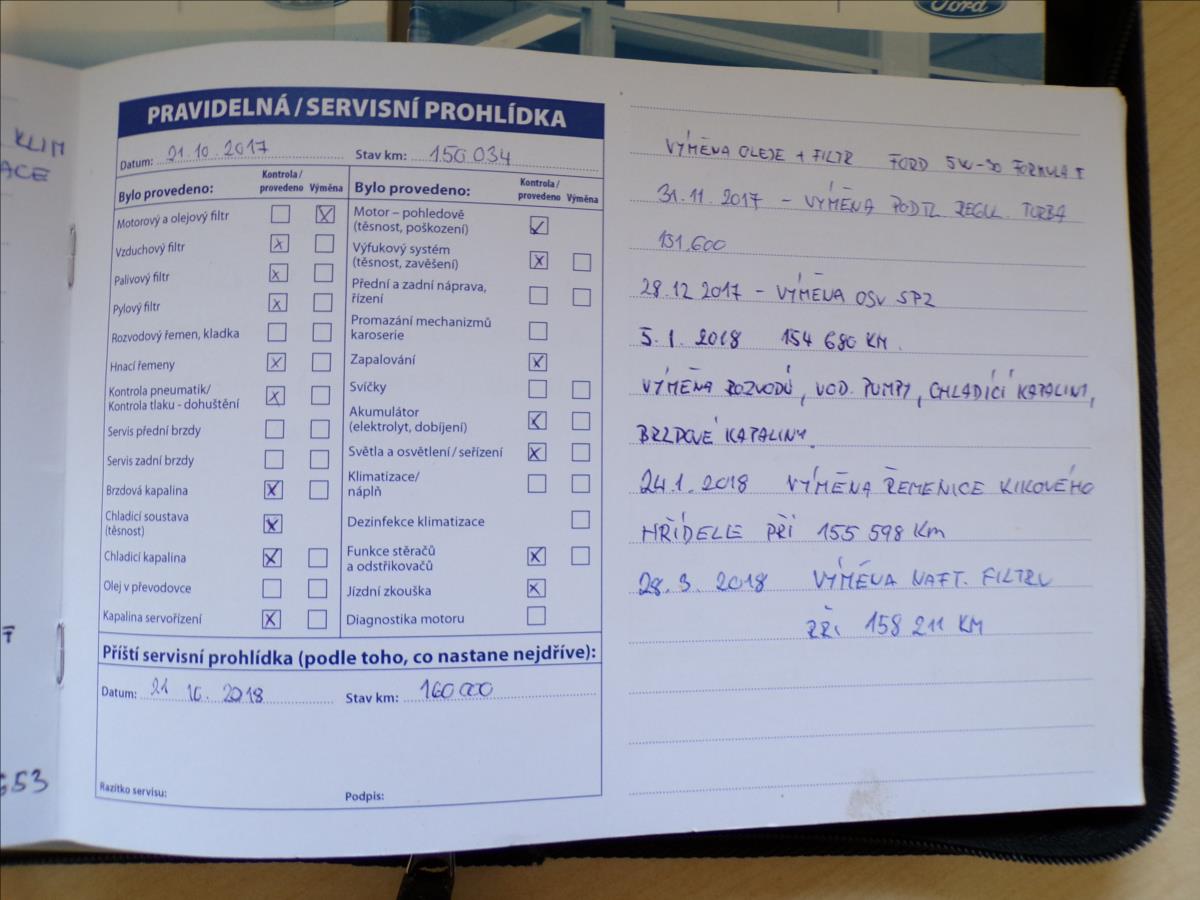 Ford
KLIM
ACE
G53
PRAVIDELNÁ / SERVISNÍ PROHLÍDKA
Datum: 21.10.2017 Stav km: 150 034
Bylo provedeno: Kontrola / provedeno Výměna
Motorový a olejový filtr
Vzduchový filtr
Palivový filtr
Pylový filtr
Rozvodový řemen, kladka
Hnací řemeny
Kontrola pneumatik/
Kontrola tlaku - dohuštění
Servis přední brzdy
Servis zadní brzdy
Brzdová kapalina
Chladicí soustava
(těsnost)
Chladicí kapalina
Olej v převodovce
Kapalina servořízení
Bylo provedeno: Kontrola / provedeno Výměna
Motor – pohledově
(těsnost, poškození)
Výfukový systém
(těsnost, zavěšení)
Přední a zadní náprava,
řízení
Promazání mechanizmů
karoserie
Zapalování
Svíčky
Akumulátor
(elektrolyt, dobíjení)
Světla a osvětlení / seřízení
Klimatizace/
náplň
Dezinfekce klimatizace
Funkce stěračů
a odstřikovačů
Jízdní zkouška
Diagnostika motoru
Příští servisní prohlídka (podle toho, co nastane nejdříve):
Datum: 21 10. 2018 Stav km: 160 000
Razítko servisu: Podpis:
VÝMĚNA OLEJE + FILTR FORD 5W-30 FORMULA F
31.11.2017 - VÝMĚNA PODTL. REGUL. TURBA
151.600
28.12 2017 - VÝMĚNA OSV SPZ
5.1.2018 154 680 KM.
VÝMĚNA ROZVODŮ, VOD. PUMPY, CHLADÍCÍ KAPALINY,
BRZDOVÉ KAPALINY.
24.1.2018 VÝMĚNA ŘEMENICE KLIKOVÉHO
HŘÍDELE PŘI 155 598 Km
28.3.2018 VÝMĚNA NAFT. FILTRU
PŘI 158 211 KM